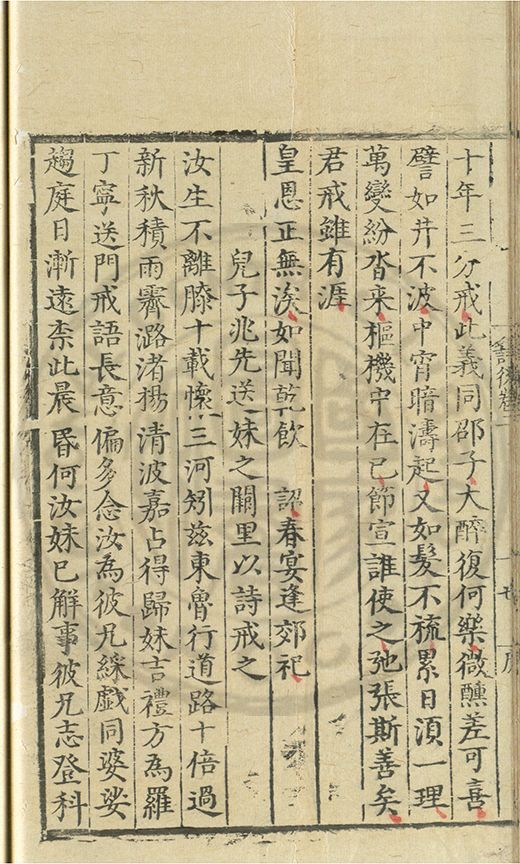 十年三分戒此義同邵子大醉復何樂微醺差可喜
譬如井不波中宵暗濤起又如髮不梳累日湏一理
萬變紛沓来樞機中在已節宣誰使之弛張斯善矣
君戒雖有涯
皇恩正無涘如聞乾飲　詔春宴逢郊祀
兒子兆先送妹之闕里以詩戒之
汝生不離膝十載懷三河矧兹東魯行道路十倍過
新秋積雨霽潞渚揚清波嘉占得歸妹吉禮方為羅
丁寧送門戒語長意偏多念汝為彼兄綵戯同婆娑
趨庭日漸遠柰此晨昏何汝妹已解事彼兄志登科
詩後卷一